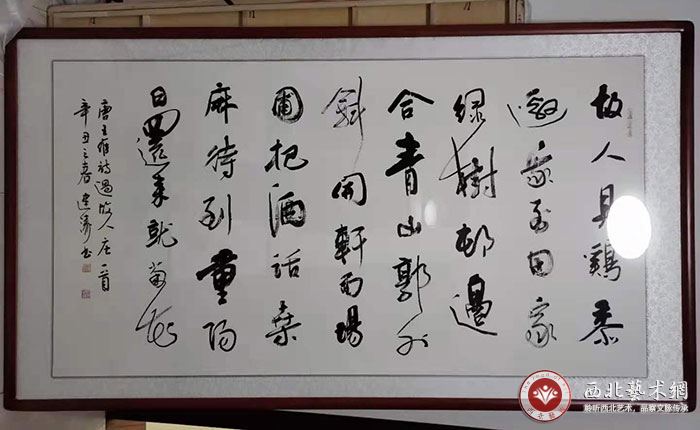 故人具鷄黍
邀我至田家
绿樹邨邊
合青山郭外
斜開軒面場
圃把酒話桑
麻待到重陽
日還来就菊花
唐王維詩過故人庄一首
辛丑之春建书
西北藝术網
聆听西北艺术，品察文脉传承